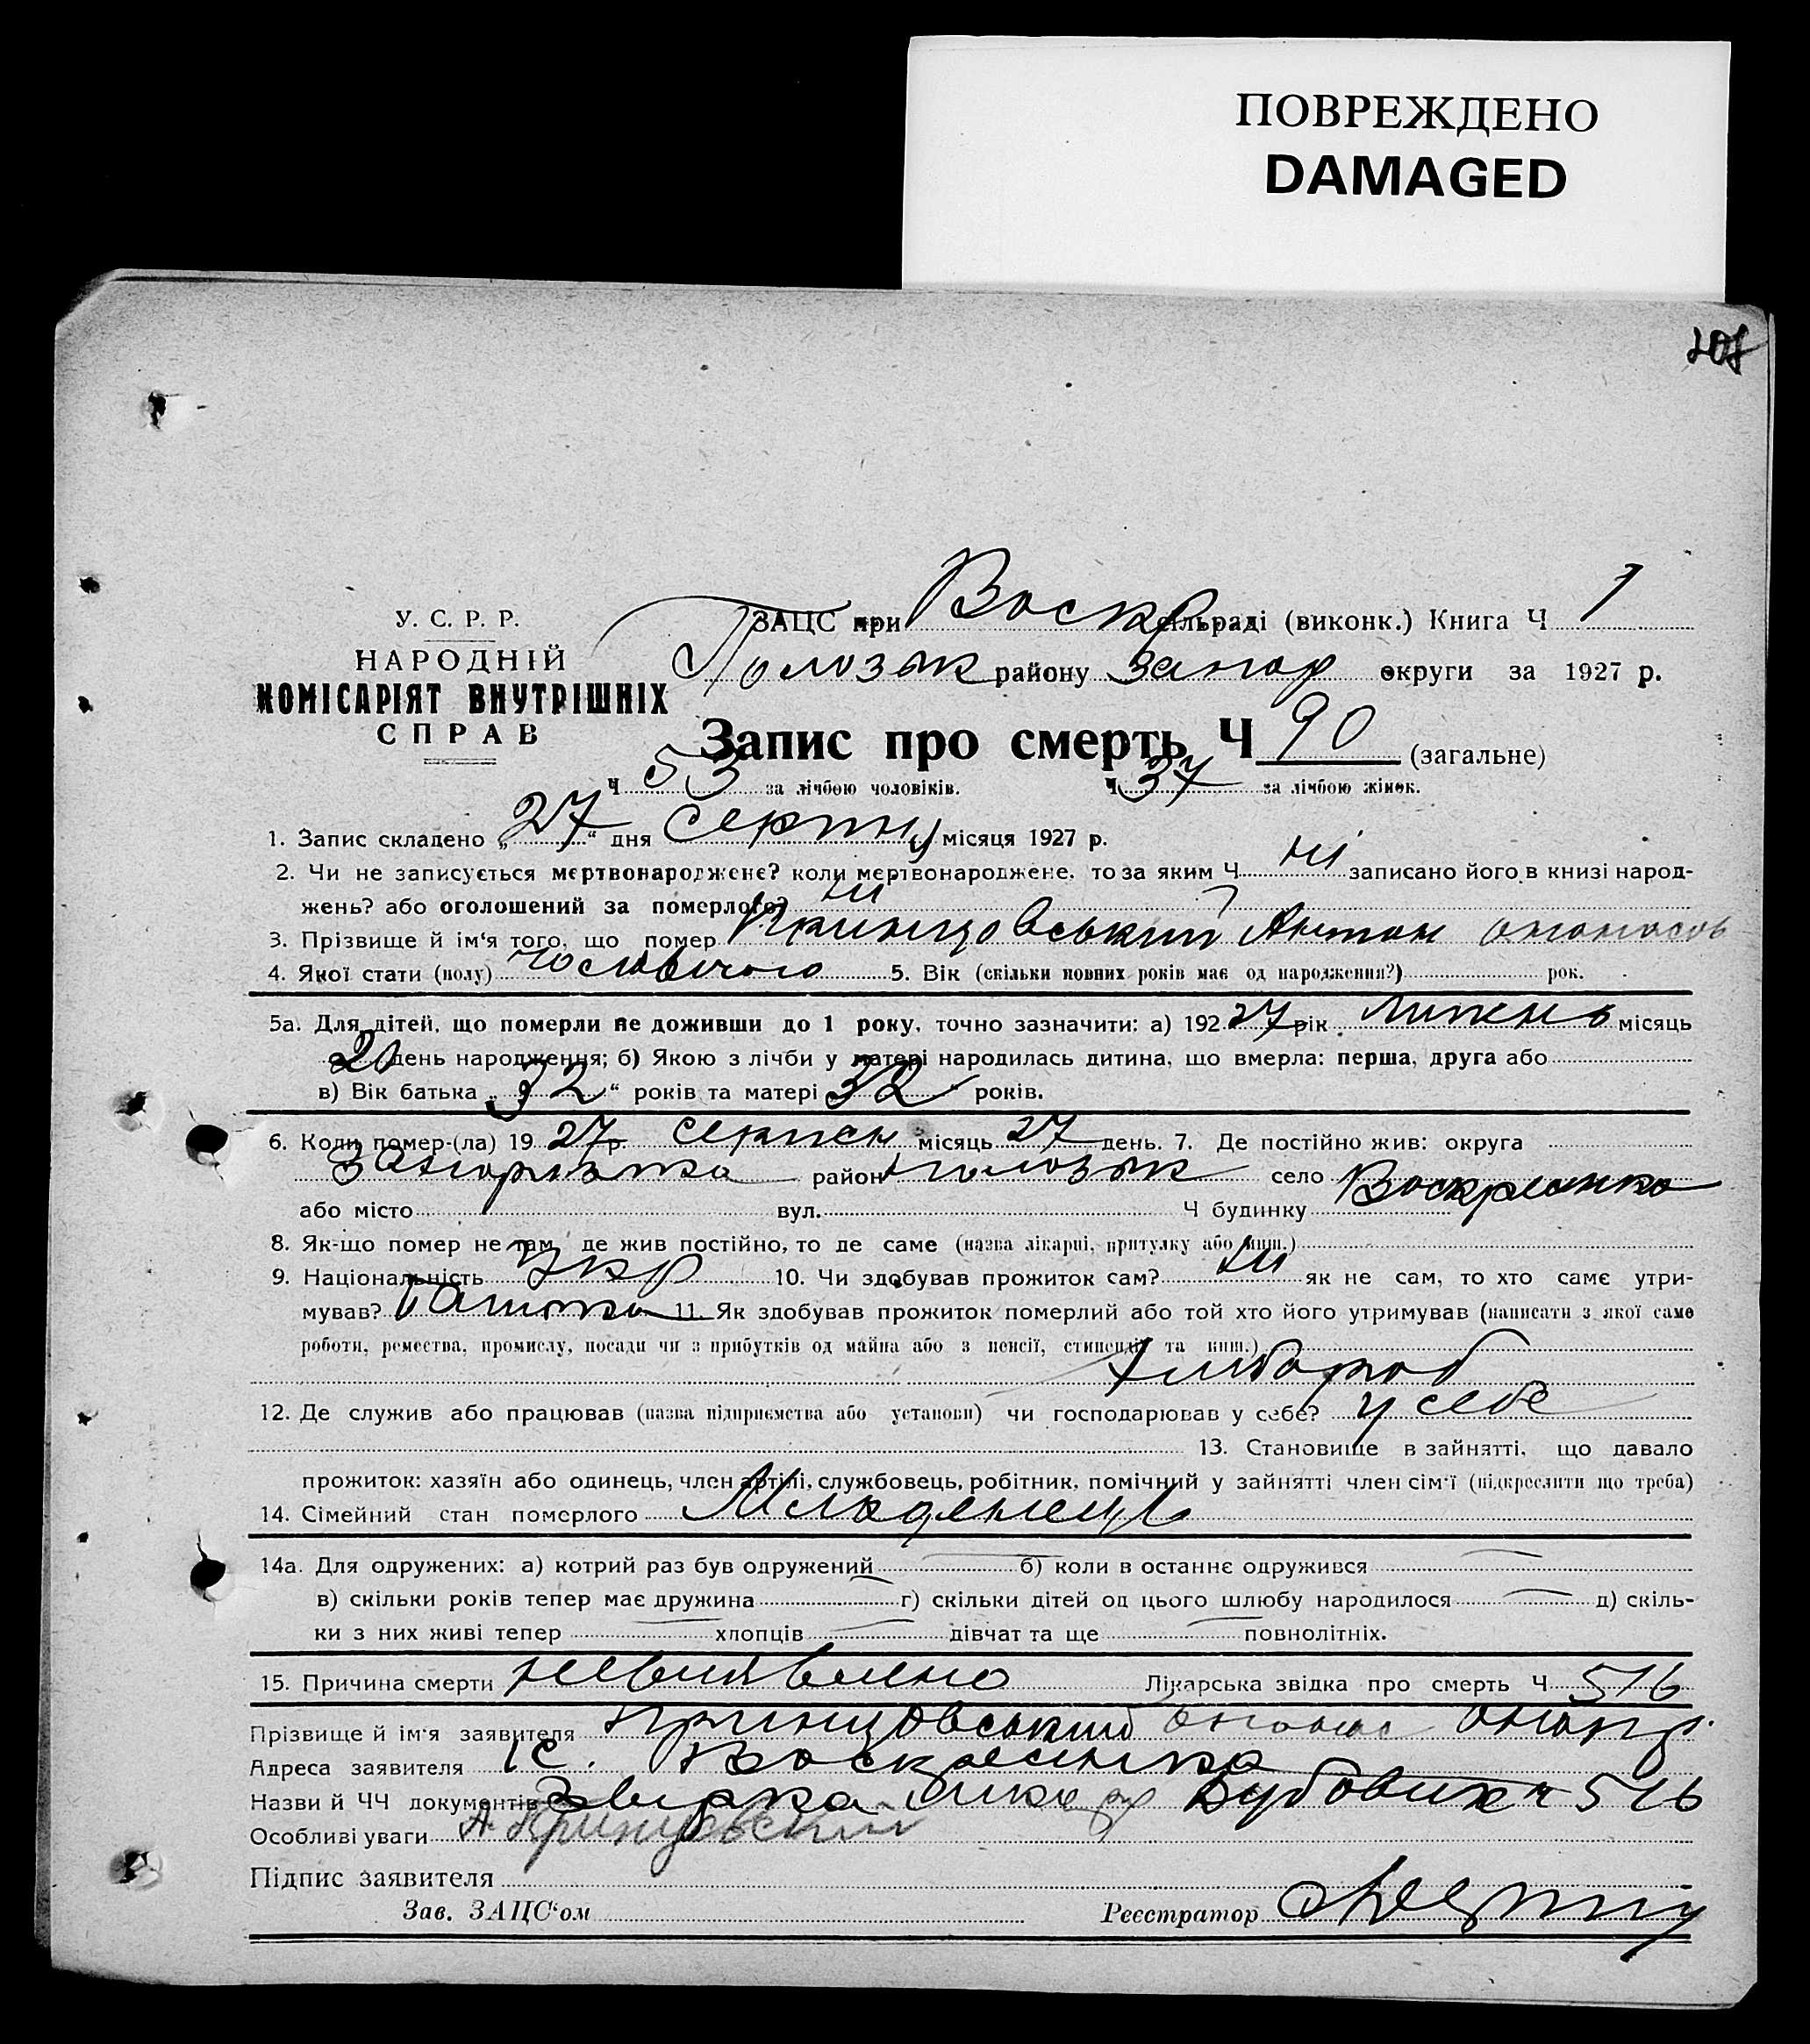 ПОВРЕЖДЕНО
DAMAGED
У. С. Р. Р.
НАРОДНІЙ
КОМІСАРІЯТ ВНУТРІШНІХ
СПРАВ
ЗАЦС при Воскр сільраді (виконк.) Книга Ч 1
Пологськ району Запор округи за 1927 р.
Запис про смерть Ч 90 (загальне)
Ч 53 за лічбою чоловіків. Ч 37 за лічбою жінок.
1. Запис складено „27“ дня Серпня місяця 1927 р.
2. Чи не записується мертвонароджене? коли мертвонароджене, то за яким Ч ні записано його в книзі народ-
жень? або оголошений за померлого? ні
3. Прізвище й ім'я того, що помер Антон
4. Якої стати (полу) чоловічого 5. Вік (скільки повних років має од народження?) рок.
5а. Для дітей, що померли не доживши до 1 року, точно зазначити: а) 192 27 рік Липень місяць
20 день народження; б) Якою з лічби у матері народилась дитина, що вмерла: перша, друга або
в) Вік батька „32“ років та матері 32 років.
6. Коли помер-(ла) 19 27 р. серпен місяць 27 день. 7. Де постійно жив: округа
район село Воскресенка
або місто вул. Ч будинку
8. Як-що помер не там, де жив постійно, то де саме (назва лікарні, притулку або инш.)
9. Національність Укр 10. Чи здобував прожиток сам? ні як не сам, то хто саме утри-
мував? Батько 11. Як здобував прожиток померлий або той хто його утримував (написати з якої саме
роботи, ремества, промислу, посади чи з прибутків од майна або з пенсії, стипендії та инш.)
Хлібороб
12. Де служив або працював (назва підприємства або установи) чи господарював у себе? у себе
13. Становище в зайнятті, що давало
прожиток: хазяїн або одинець, член артілі, службовець, робітник, помічний у зайнятті член сім'ї (підкреслити що треба)
14. Сімейний стан померлого Младенець
14а. Для одружених: а) котрий раз був одружений б) коли в останнє одружився
в) скільки років тепер має дружина г) скільки дітей од цього шлюбу народилося д) скіль-
ки з них живі тепер хлопців дівчат та ще повнолітніх.
15. Причина смерти невиявлено Лікарська звідка про смерть Ч 516
Прізвище й ім'я заявителя
Адреса заявителя с. Воскресенка
Назви й ЧЧ документів 516
Особливі уваги
Підпис заявителя
Зав. ЗАЦС'ом Реєстратор